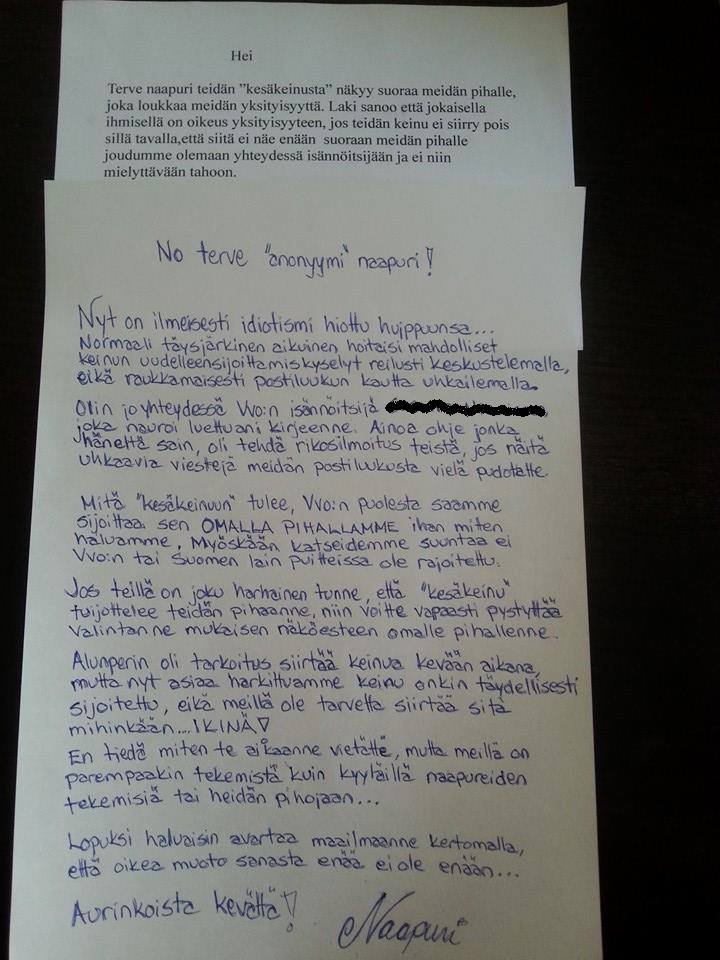 Hei
Terve naapuri teidän ”kesäkeinusta” näkyy suoraa meidän pihalle,
joka loukkaa meidän yksityisyyttä. Laki sanoo että jokaisella
ihmisellä on oikeus yksityisyyteen, jos teidän keinu ei siirry pois
sillä tavalla,että siitä ei näe enään suoraan meidän pihalle
joudumme olemaan yhteydessä isännöitsijään ja ei niin
mielyttävään tahoon.
No terve "anonyymi" naapuri!
Nyt on ilmeisesti idiotismi hiottu huippuunsa...
Normaali täysjärkinen aikuinen hoitaisi mahdolliset
keinun uudelleensijoittamiskyselyt reilusti keskustelemalla,
eikä raukkamaisesti postiluukun kautta uhkailemalla.
Olin jo yhteydessä Vvo:n isännöitsijä
joka nauroi luettuani kirjeenne. Ainoa ohje jonka
häneltä sain, oli tehdä rikosilmoitus teistä, jos näitä
uhkaavia viestejä meidän postiluukusta vielä pudotatte.
Mitä "kesäkeinuun" tulee, Vvo:n puolesta saamme
sijoittaa sen OMALLA PIHALLAMME ihan miten
haluamme. Myöskään katseidemme suuntaa ei
Vvo:n tai Suomen lain puitteissa ole rajoitettu.
Jos teillä on joku harhainen tunne, että "kesäkeinu"
tuijottelee teidän pihaanne, niin voitte vapaasti pystyttää
valintanne mukaisen näköesteen omalle pihallenne.
Alunperin oli tarkoitus siirtää keinua kevään aikana,
mutta nyt asiaa harkittuamme keinu onkin täydellisesti
sijoitettu, eikä meillä ole tarvetta siirtää sitä
mihinkään...IKINÄ!
En tiedä miten te aikaanne vietätte, mutta meillä on
parempaakin tekemistä kuin kyytäillä naapureiden
tekemisiä tai heidän pihojaan...
Lopuksi haluaisin avartaa maailmaanne kertomalla,
että oikea muoto sanasta enää ei ole enään...
Aurinkoista kevättä!
Naapuri